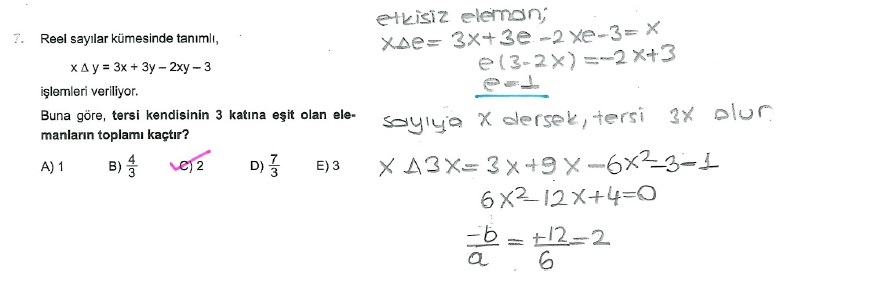 7. Reel sayılar kümesinde tanımlı,
x Δ y = 3x + 3y – 2xy – 3
işlemleri veriliyor.
Buna göre, tersi kendisinin 3 katına eşit olan ele-
manların toplamı kaçtır?
A) 1 B) 4/3 C) 2 D) 7/3 E) 3
etkisiz eleman;
xΔe= 3x+3e-2xe-3=x
e(3-2x)=-2x+3
e=1
sayıya x dersek, tersi 3x olur.
x Δ3x= 3x+9x-6x²-3=1
6x²-12x+4=0
-b/a = +12/6 = 2